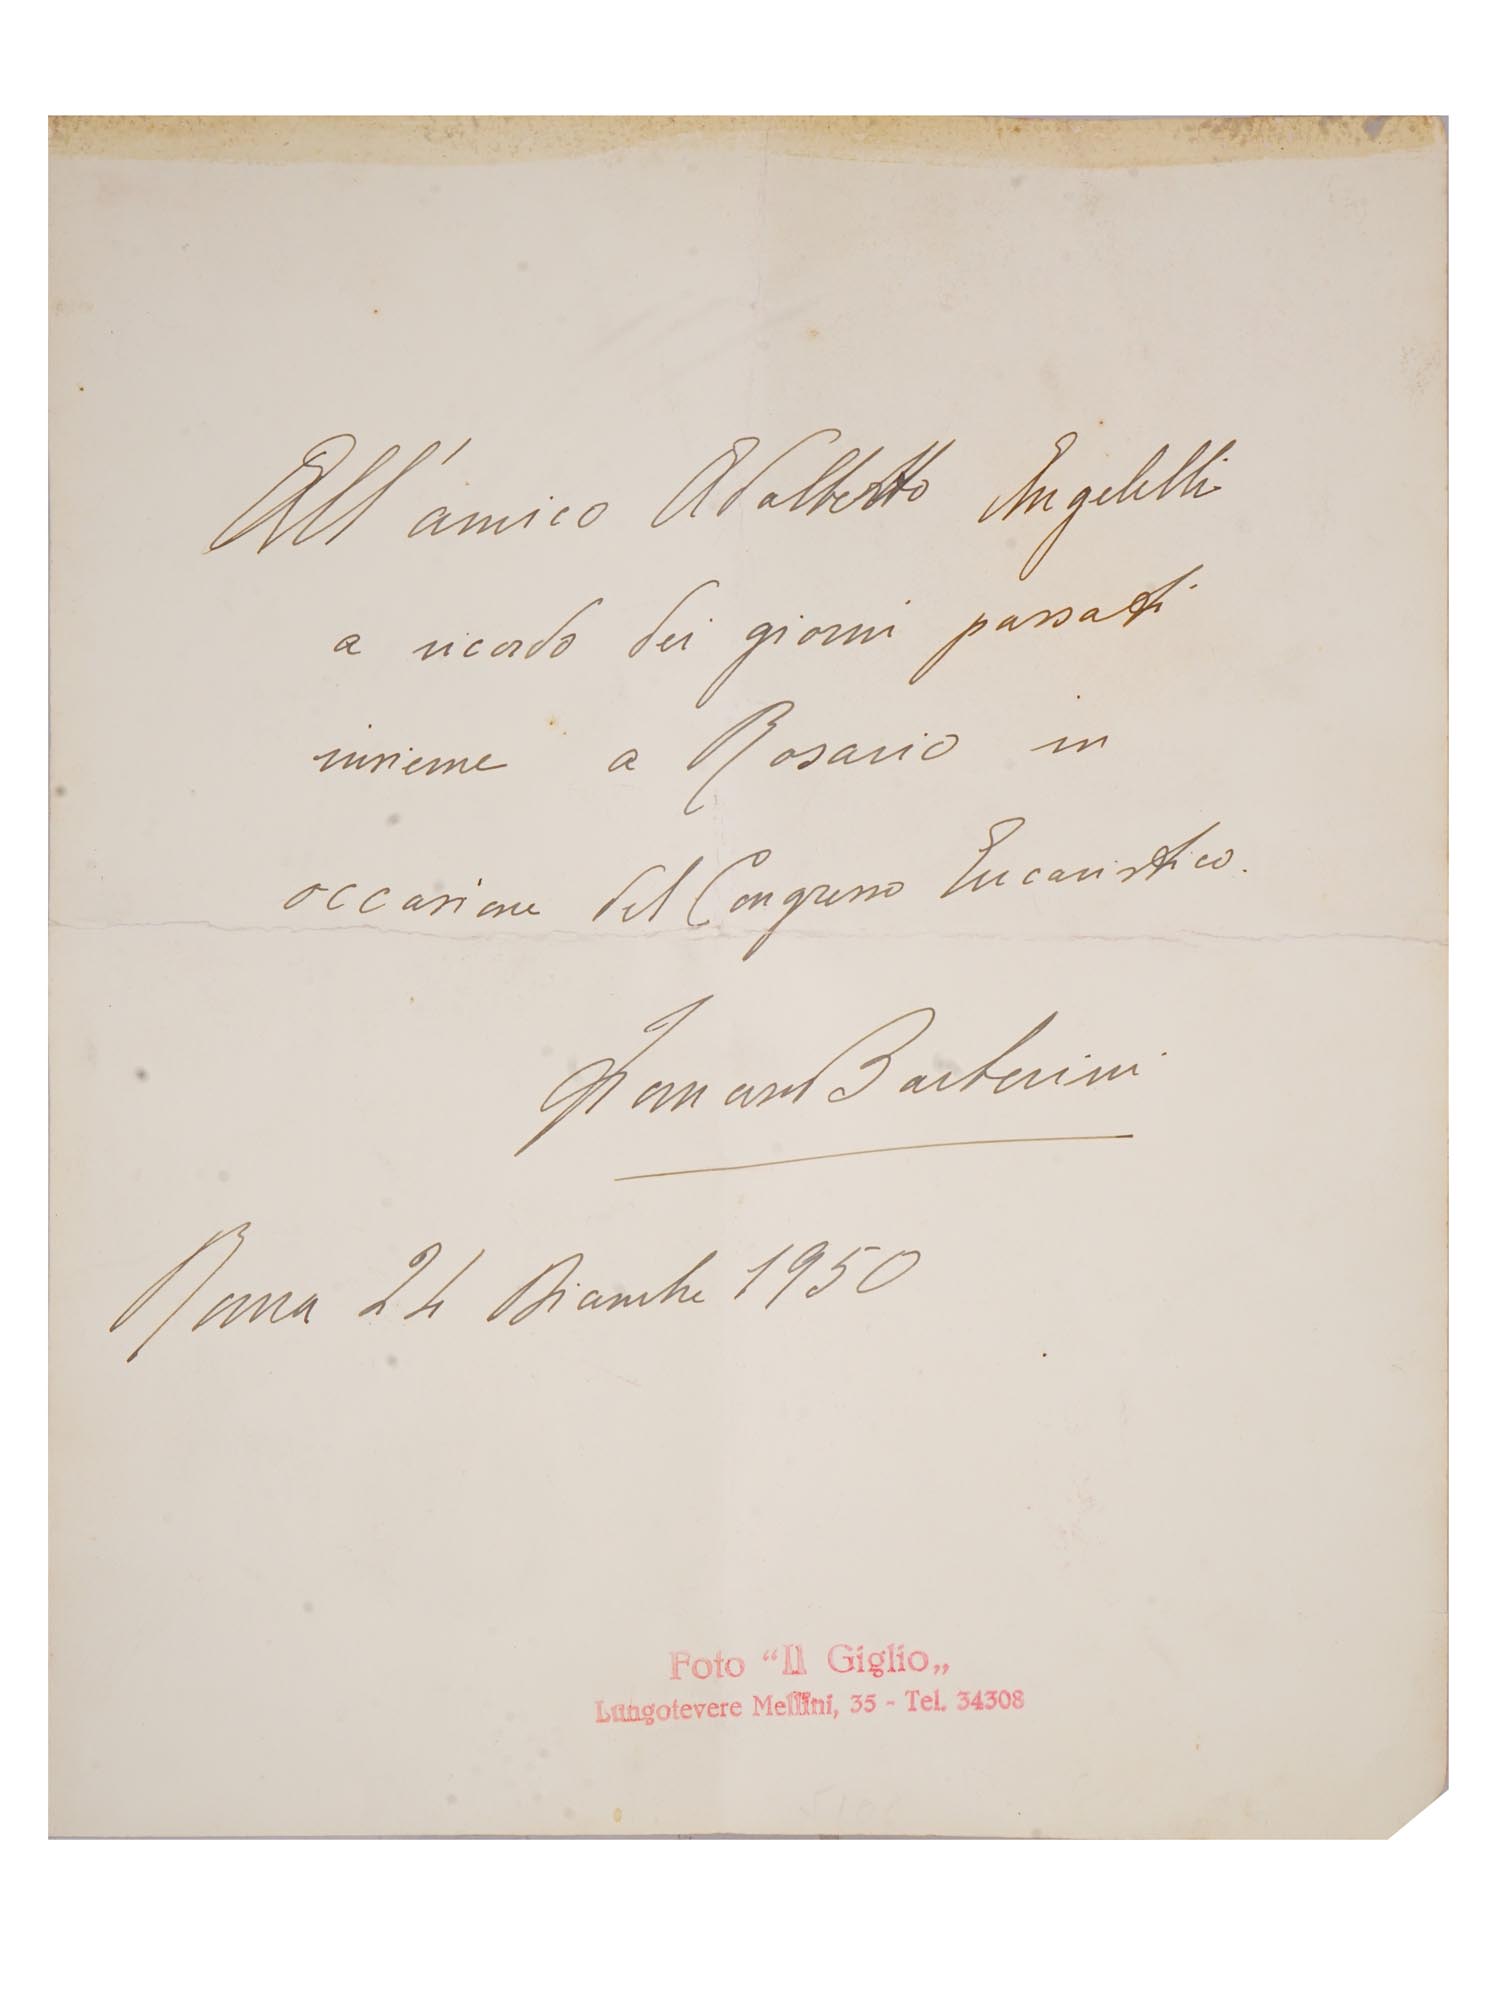 All'amico Adalberto Angelelli
a ricordo dei giorni passati
insieme a Rosario in
occasione del Congresso Eucaristico.
Barberini
Roma 24 Dicembre 1950
Foto "Il Giglio„
Lungotevere Mellini, 35 - Tel. 34308